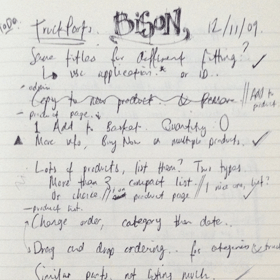 TODO
Truck Parts. BISON, 12/11/09.
Same titles for different fitting? ✓
↳ use application * or ID..
- admin
Copy to new product & Rename // Add to product
- product page.
1 Add to Basket. Quantity 0
▲ More info, Buy Now or multiple products. ✓
Lots of products, list them? Two types
More than 3 compact list
Or choice // on product page
- product list.
Change order, category then date..
Drag and drop ordering... for categories
Similar parts, not listing much.